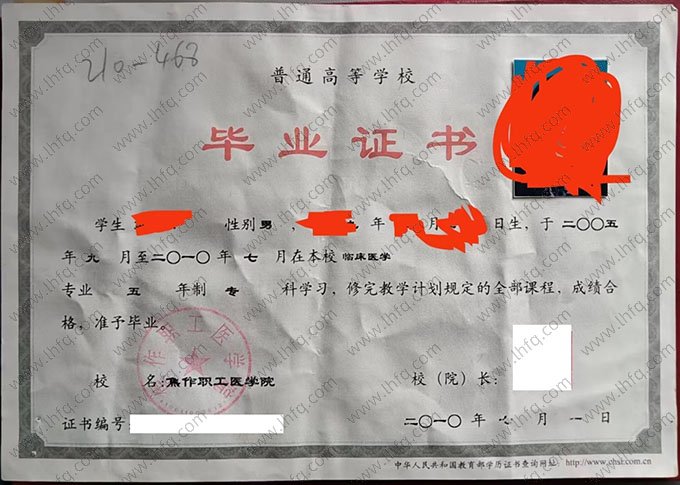 210-468
普通高等学校
毕业证书
学生 性别 男 , 年 月 日生, 于二〇〇五
年九 月至二〇一〇年 七 月在本校 临床医学
专业 五 年制 专 科学习, 修完教学计划规定的全部课程, 成绩合
格, 准予毕业。
焦作职工医学院
校 名: 焦作职工医学院 校(院)长:
证书编号 二〇一〇 年 七 月 一 日
中华人民共和国教育部学历证书查询网址: http://www.chsi.com.cn
www.lhfq.com